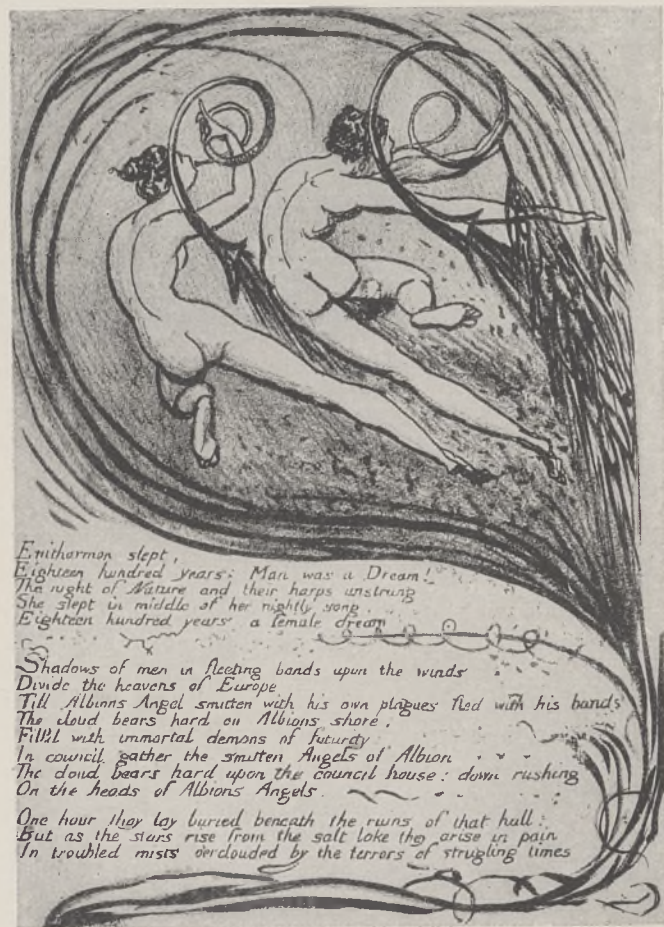 Enitharmon slept,
Eighteen hundred years: Man was a Dream!
The night of Nature and their harps unstrung
She slept in middle of her nightly song
Eighteen hundred years a female dream
Shadows of men in fleeting bands upon the winds
Divide the heavens of Europe
Till Albions Angel smitten with his own plagues fled with his bands
The cloud bears hard on Albions shore.
Fill'd with immortal demons of futurity
In council gather the smitten Angels of Albion
The cloud bears hard upon the council house: down rushing
On the heads of Albions Angels.
One hour they lay buried beneath the ruins of that hall:
But as the stars rise from the salt lake they arise in pain
In troubled mists oerclouded by the terrors of strugling times